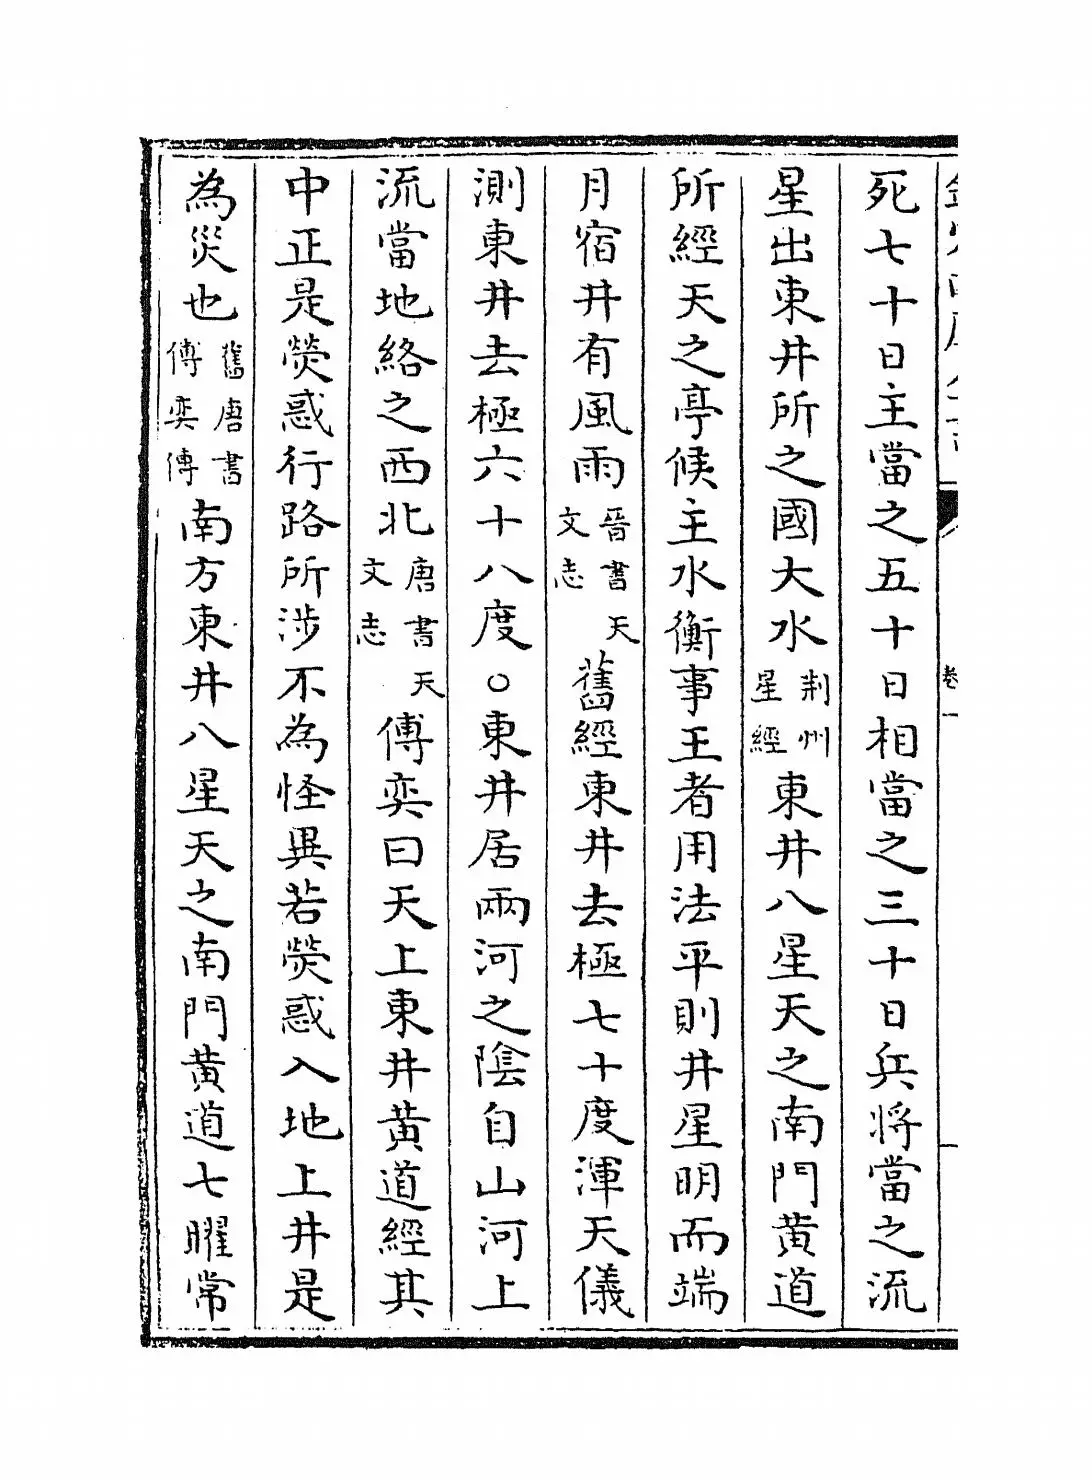 死七十日主當之五十日相當之三十日兵將當之流
星出東井所之國大水荆州星經東井八星天之南門黄道
所經天之亭候主水衡事王者用法平則井星明而端
月宿井有風雨晉書天文志舊經東井去極七十度渾天儀
測東井去極六十八度○東井居兩河之隂自山河上
流當地絡之西北唐書天文志傅奕曰天上東井黄道經其
中正是熒惑行路所涉不為怪異若熒惑入地上井是
為災也舊唐書傅奕傳南方東井八星天之南門黄道七曜常